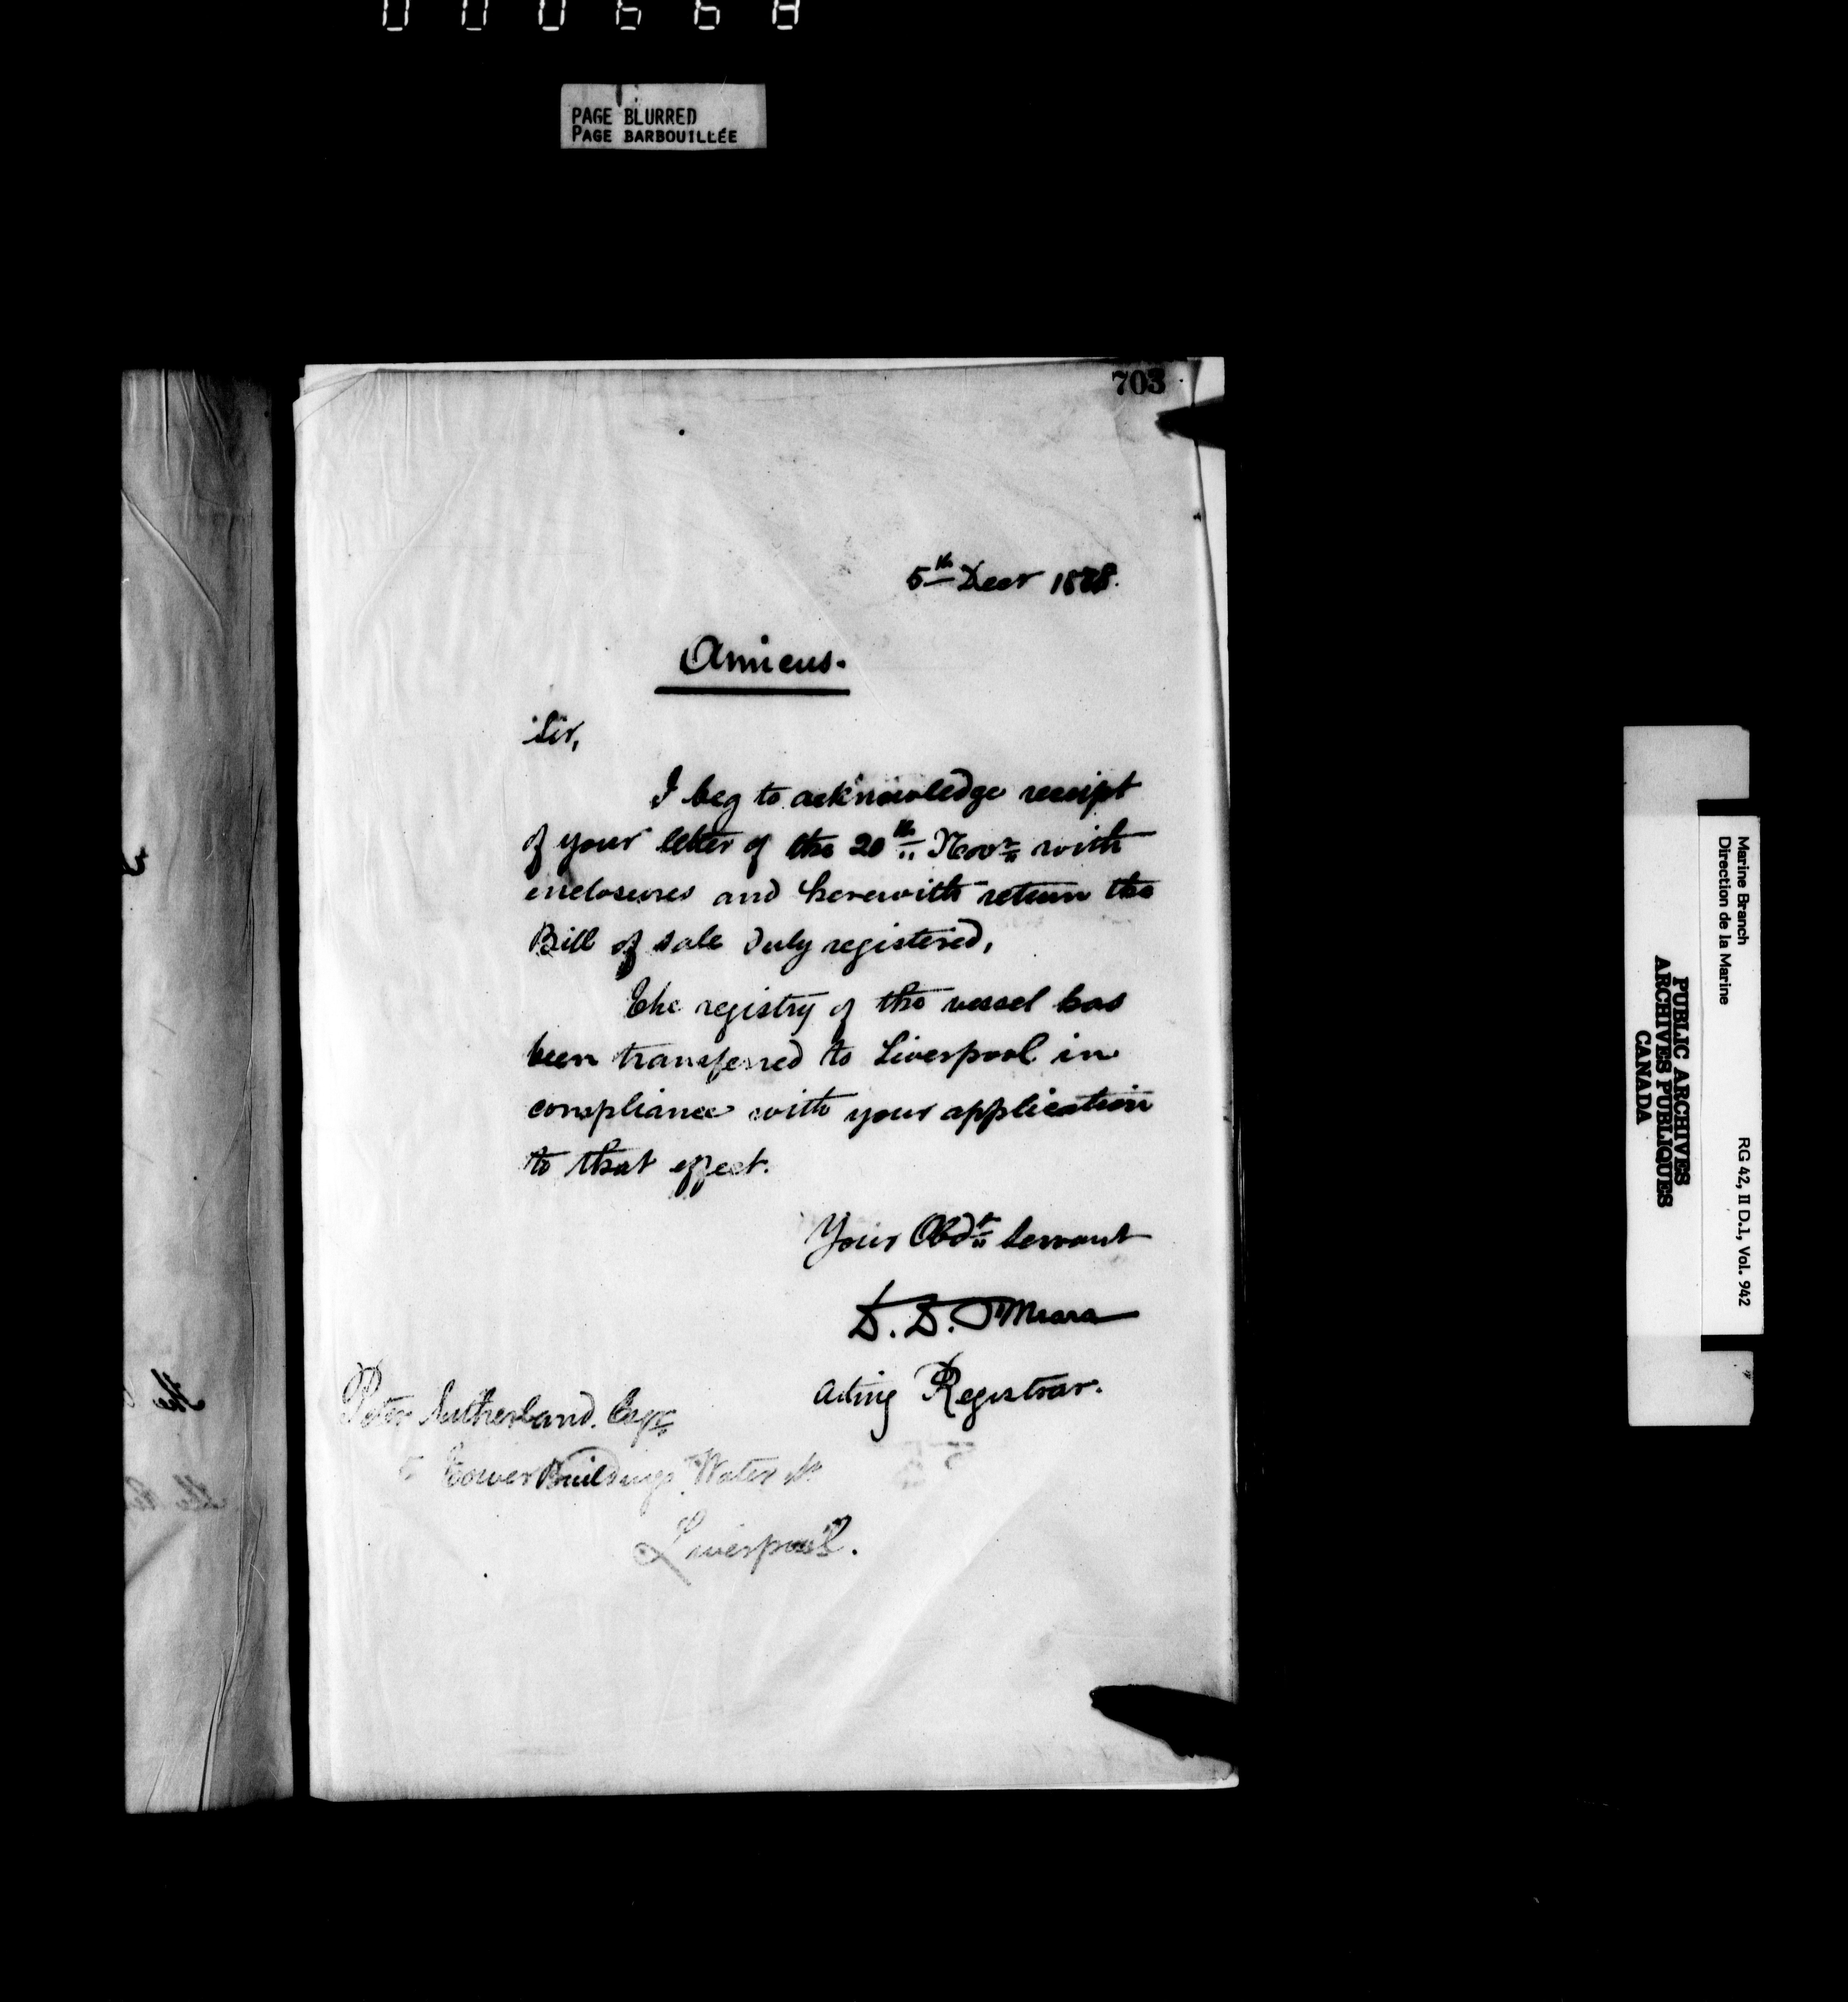 PAGE BLURRED
PAGE BARBOUILLÉE
703
5th Decr 1878.
Amicus.
Sir,
I beg to acknowledge receipt
of your letter of the 20th Novr with
enclosures and herewith return the
Bill of sale duly registered,
The registry of the vessel has
been transferred to Liverpool in
compliance with your application
to that effect.
Your Obdt Servant
D. D. O'Meara
Acting Registrar.
Peter Sutherland. Esqr
Tower Buildings Water St
Liverpool.
Marine Branch
Direction de la Marine
RG 42, II D.1, Vol. 942
PUBLIC ARCHIVES
ARCHIVES PUBLIQUES
CANADA